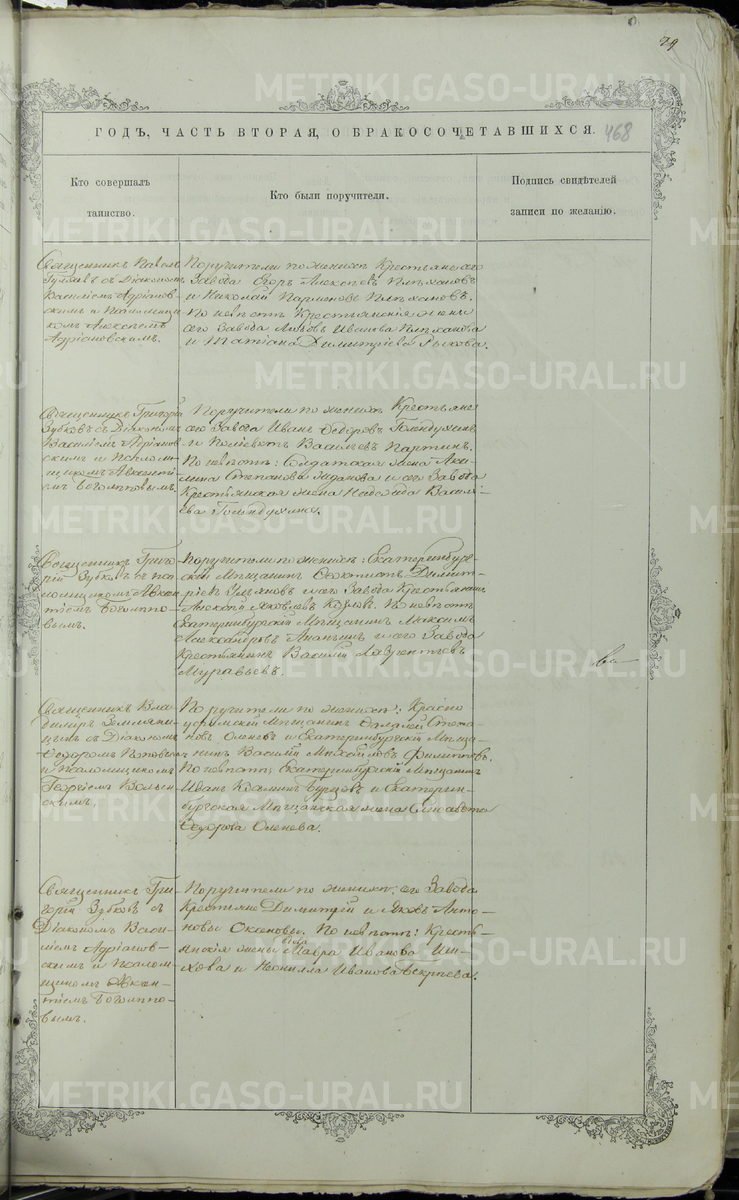 79
ГОДЪ, ЧАСТЬ ВТОРАЯ, О БРАКОСОЧЕТАВШИХСЯ.
468
Кто совершалъ
таинство.
Кто были поручители.
Подпись свидѣтелей
записи по желанію.
Священникъ Павелъ
съ Діакономъ
Василіемъ Адріанов-
скимъ и Псаломщи-
комъ Алексѣемъ
Адріановскимъ.
Поручители по женихѣ Крестьяне сего
Завода Егоръ Алексѣевъ Плѣхановъ
и Николай Парменовъ Плѣхановъ.
По невѣстѣ Крестьянскія жены
сего Завода Любовь Иванова Плѣханова
и Татіана Димитріева Рыкова.
Священникъ Григорій
Зубковъ съ Діакономъ
Василіемъ Адріанов-
скимъ и Псалом-
щикомъ Авксенті-
емъ Боголѣповымъ.
Поручители по женихѣ Крестьяне
сего Завода Иванъ Ѳедоровъ Голендухинъ
и Поліевктъ Васильевъ Партинъ.
По невѣстѣ: Солдатская жена Аку-
лина Степанова и сего Завода
Крестьянская жена Надежда Василь-
ева Голендухина.
Священникъ Григо-
рій Зубковъ съ Пса-
ломщикомъ Авксен-
тіемъ Боголѣпо-
вымъ.
Поручители по женихѣ: Екатеринбург-
скій Мѣщанинъ Ѳеоктистъ Димит-
ріевъ Ульяновъ и сего Завода Крестьянинъ
Алексѣй Яковлевъ Козловъ. По невѣстѣ
Екатеринбургскій Мѣщанинъ Максимъ
Александровъ Ананьинъ и сего Завода
Крестьянинъ Василій Лаврентьевъ
Муравьевъ.
Священникъ Вла-
димиръ Земляни-
цынъ съ Діакономъ
Ѳедоромъ
и Псаломщикомъ
Георгіемъ Волын-
скимъ.
Поручители по женихѣ: Красно
уфимскій Мѣщанинъ Степа-
новъ Оленевъ и Екатеринбургскій Мѣща-
нинъ Василій Михайловъ Филиповъ.
По невѣстѣ; Екатеринбургскій Мѣщанинъ
Иванъ Козминъ Бурцовъ и Екатерин-
бургская Мѣщанская жена Елисавета
Ѳедорова Оленева.
Священникъ Гри-
горій Зубковъ съ
Діакономъ Васи-
ліемъ Адріанов-
скимъ и Псалом-
щикомъ Авксен-
тіемъ Боголѣпо-
вымъ.
Поручители по женихѣ: сего Завода
Крестьяне Димитрій и Яковъ Анто-
новы Оксеновы. По невѣстѣ: Кресть-
янскія жены Мавра Иванова
и Неонилла Иванова
METRIKI.GASO-URAL.RU